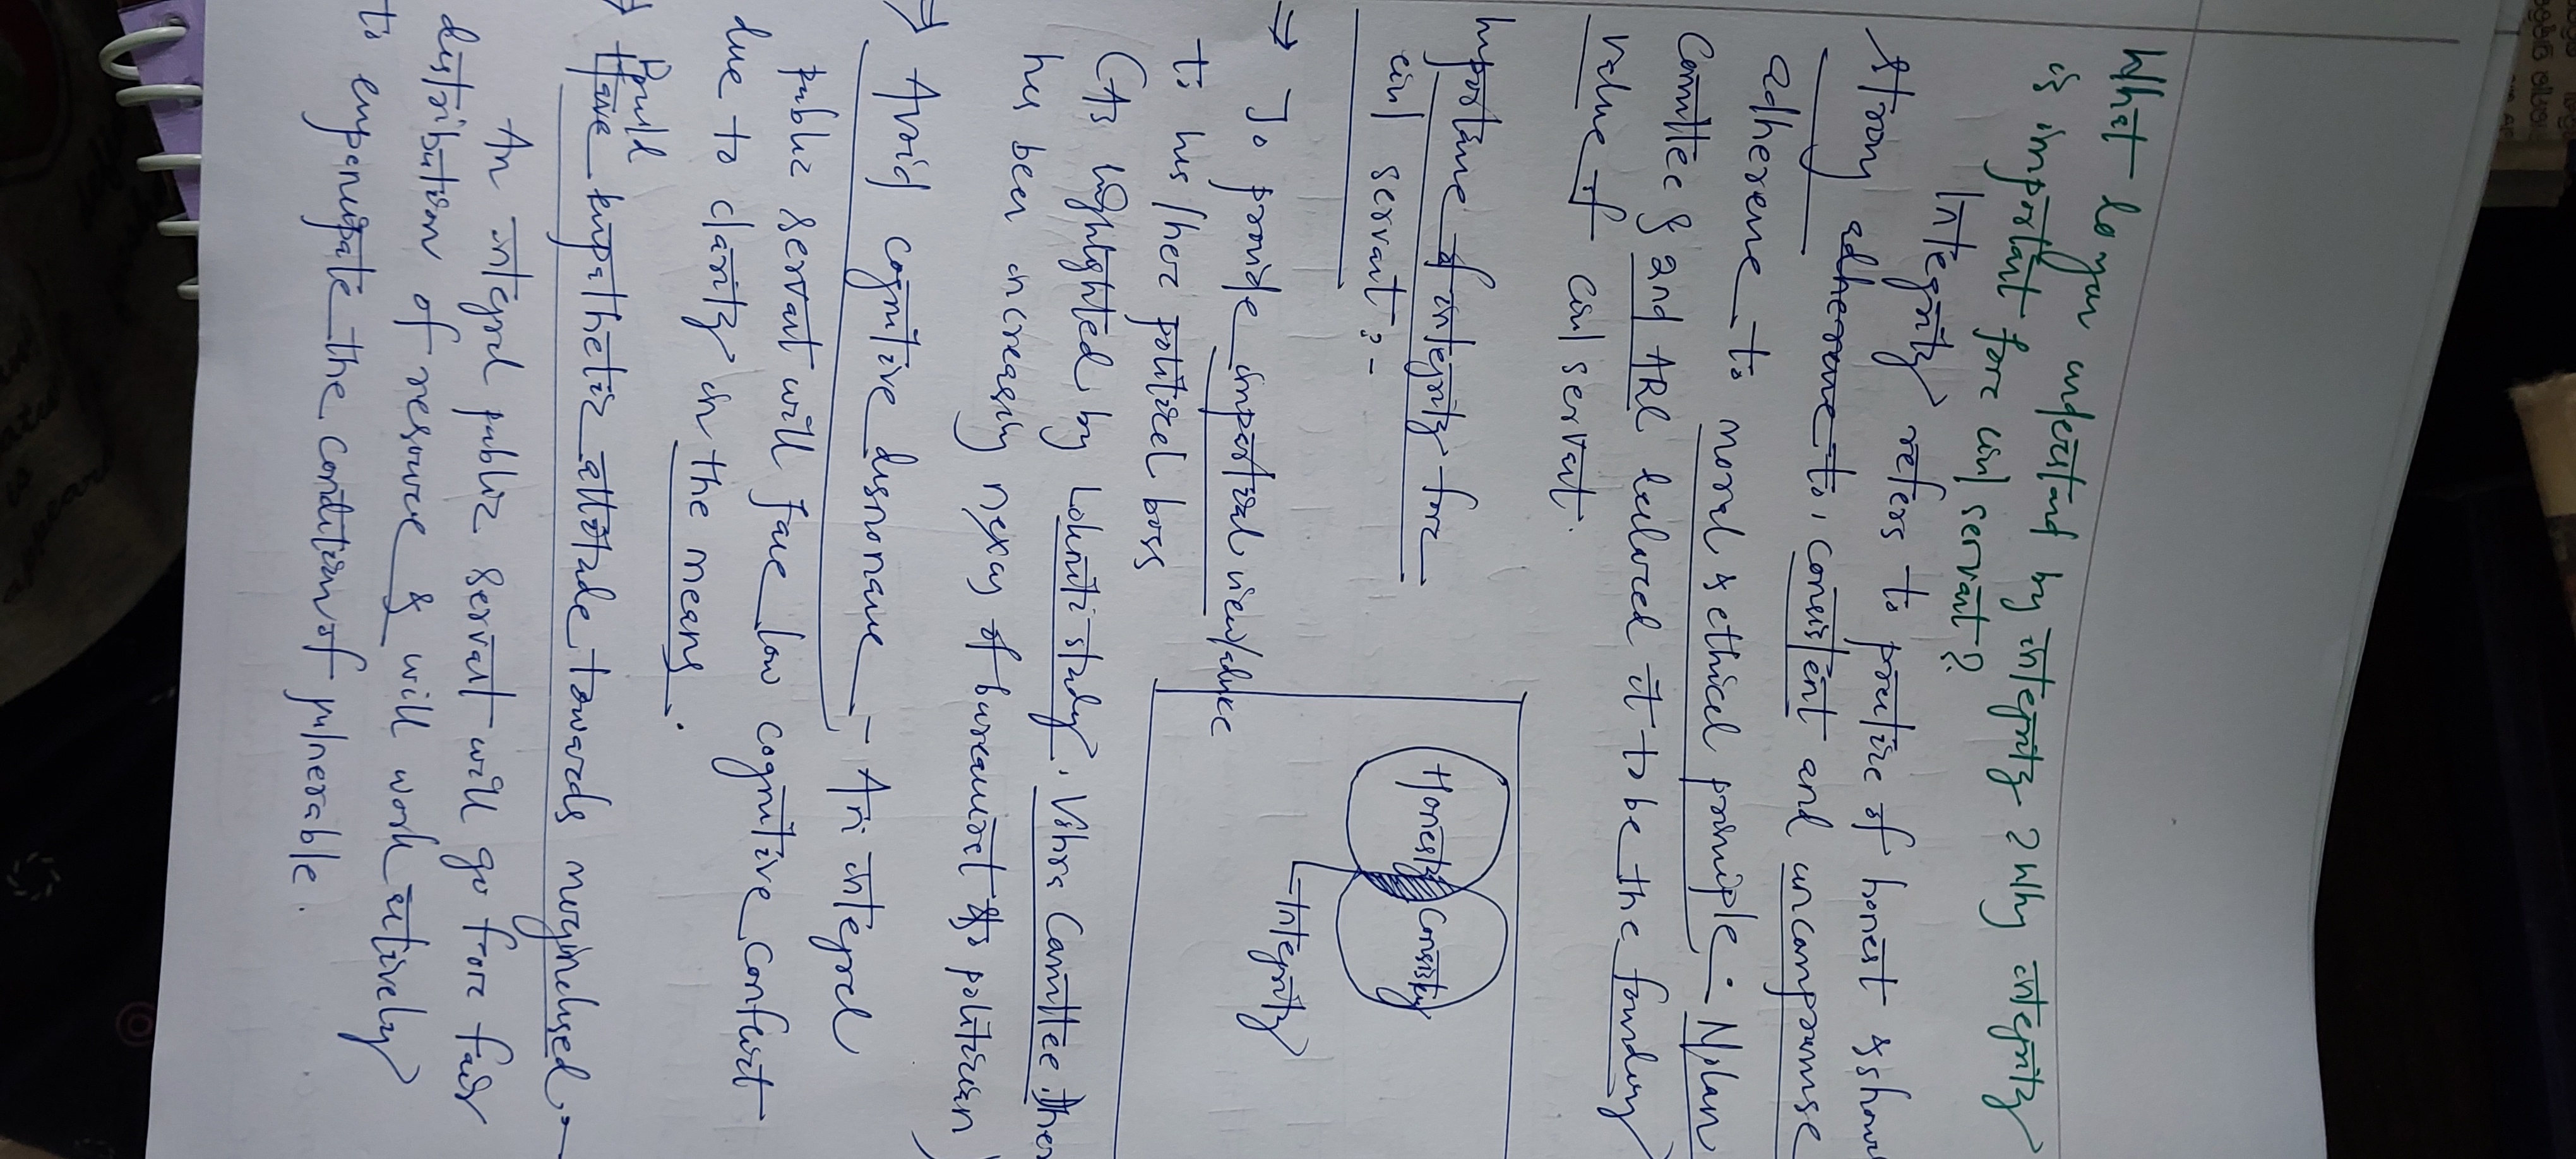 What do you understand by integrity? Why integrity
is important for civil servant?
Integrity refers to practise of honest & show
strong adherence to, consistent and uncompromise
adherence to moral & ethical principle. Nolan
Committee & 2nd ARC declared it to be the founding
value of civil servant.
Importance of integrity for
civil servant:-
Honesty
Consistency
Integrity
⇒ To provide impartial view/advice
to his/her political boss
(As highlighted by Lokniti study. Vohra Committee, ther
has been increasing nexus of bureaucrat & politician)
⇒ Avoid cognitive dissonance - An integral
public servant will face low cognitive conflict
due to clarity in the means.
⇒ Build empathetic attitude towards marginalised.-
An integral public servant will go for fair
distribution of resource & will work actively
to the condition of vulnerable.